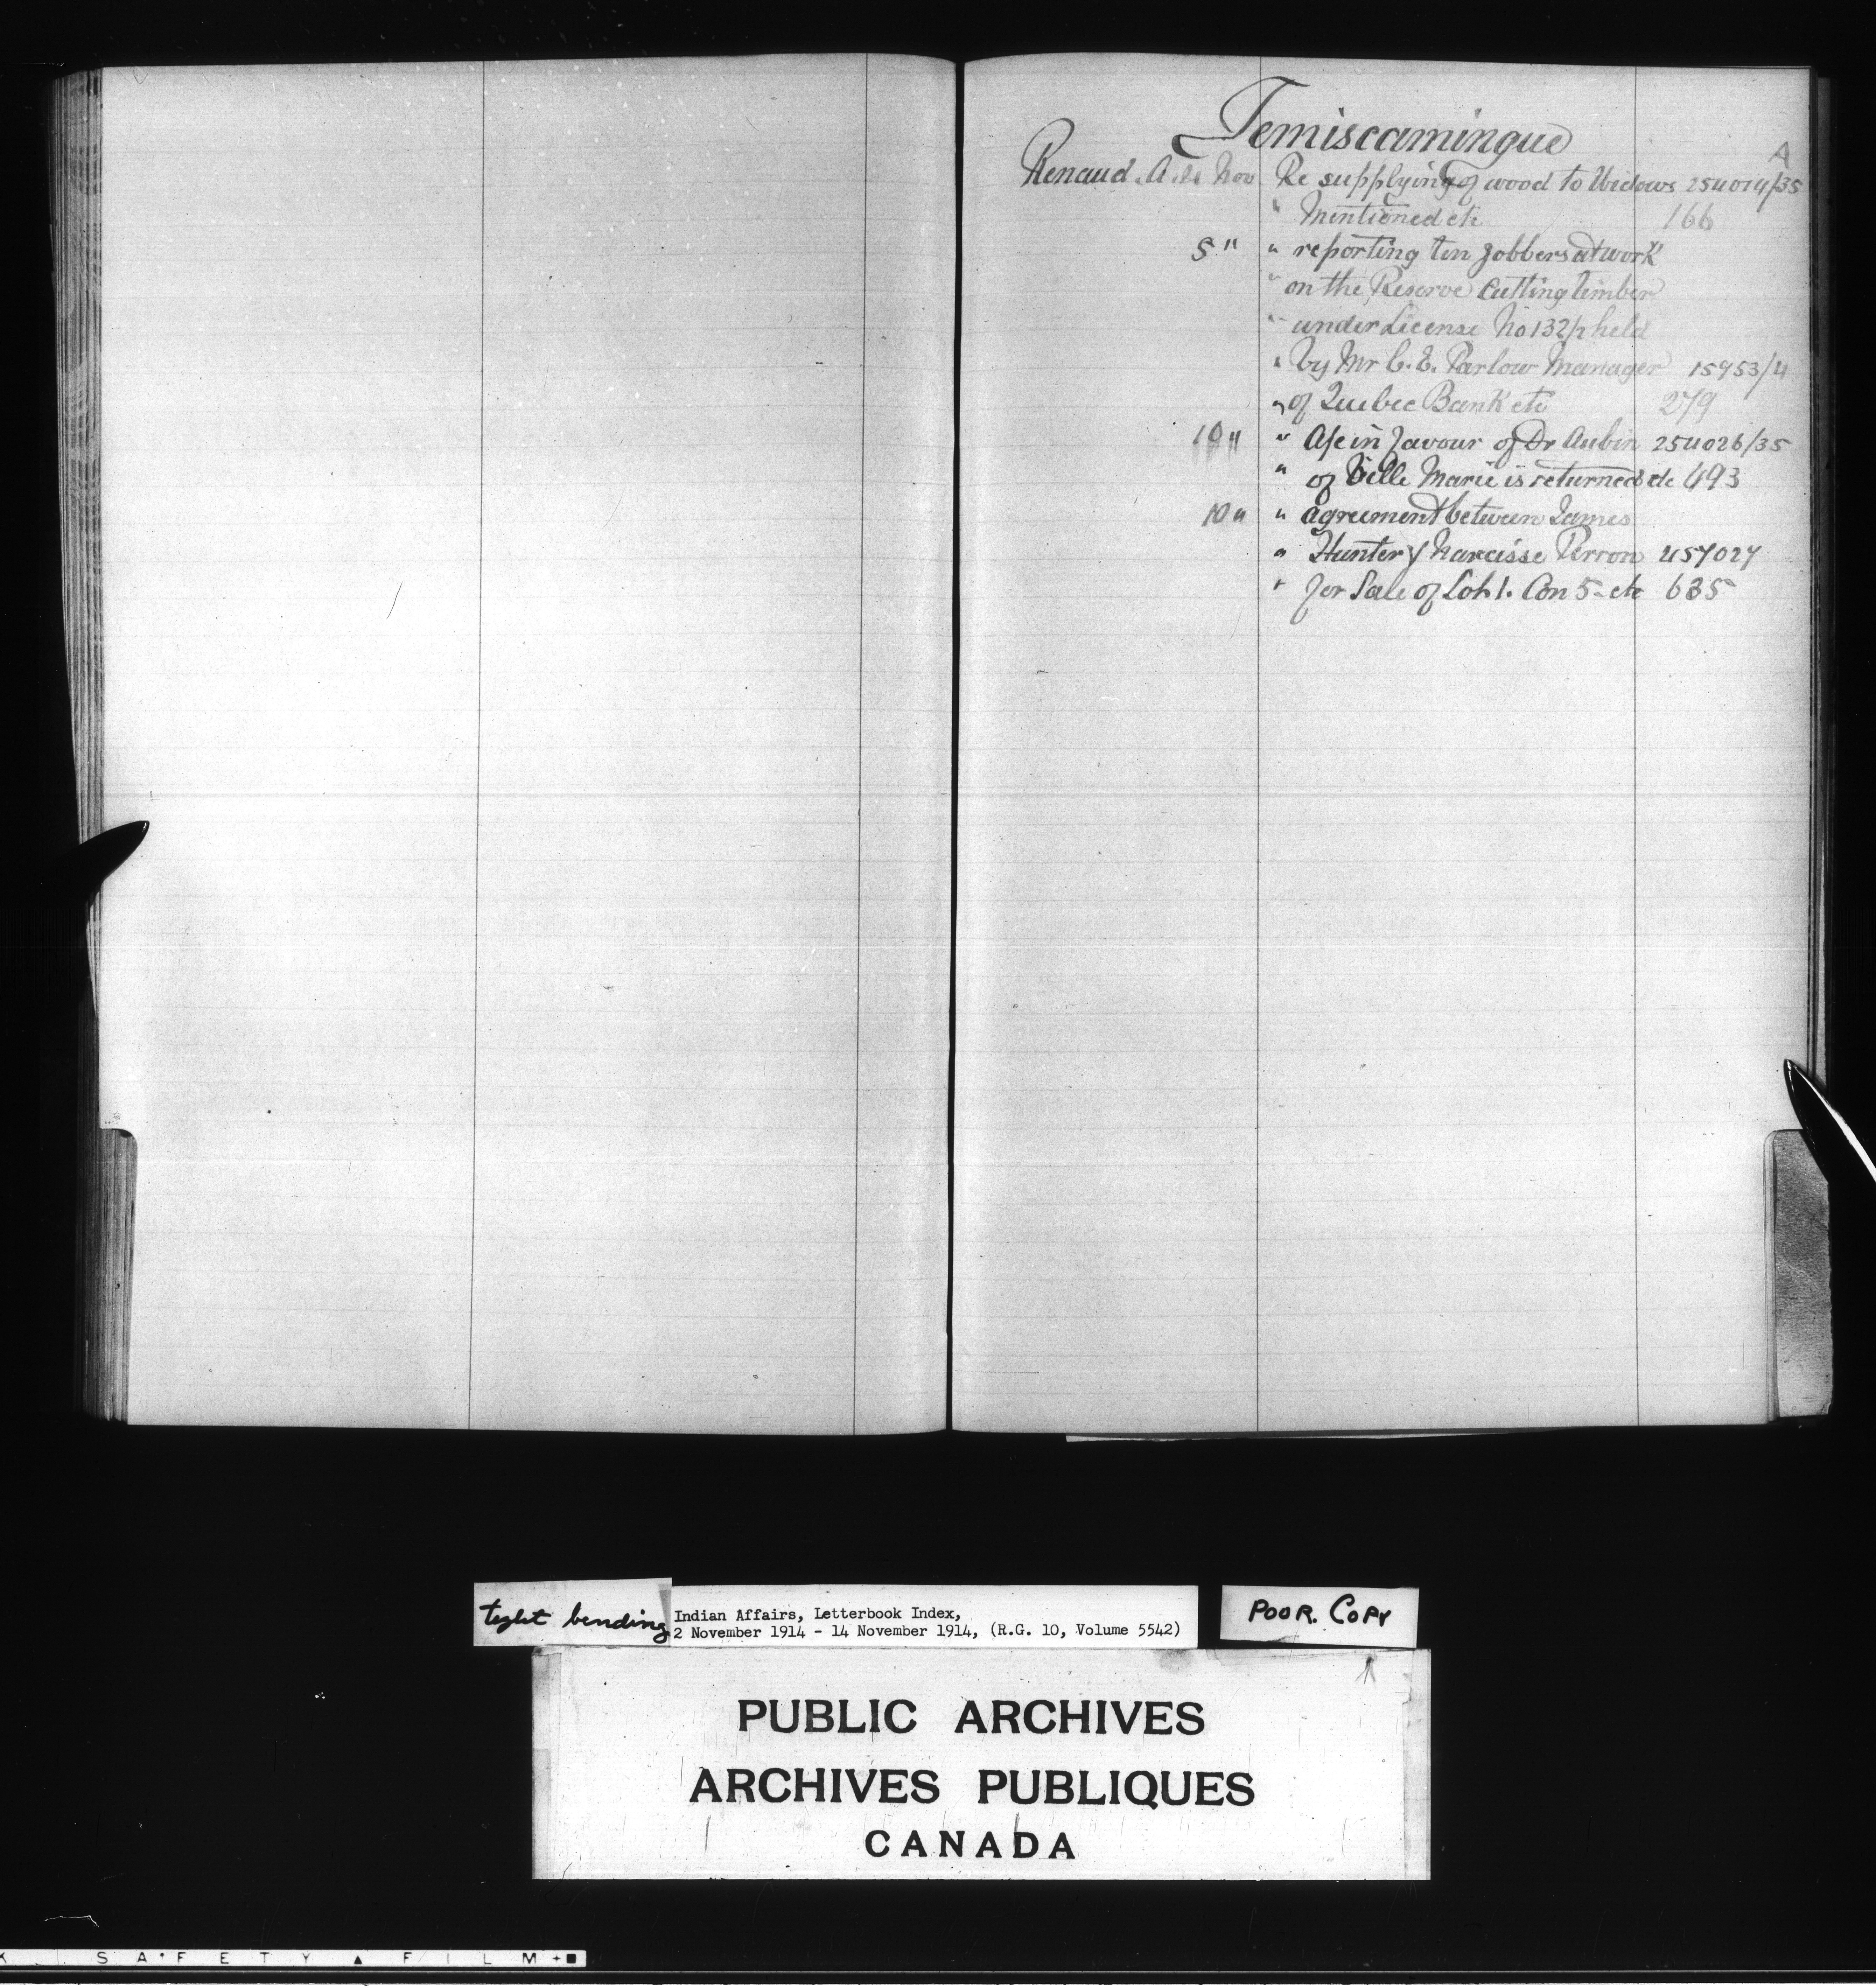 Temiscamingue
A
Renaud. A. 4 Nov Re supplying of wood to Widows 254014/35
" Mentioned etc 166
5 " " reporting ten jobbers at work
" on the Reserve Cutting timber
" under License No 132/2 held
" by Mr C. E. Parlow Manager 15953/4
" of Quebec Bank etc 279
10 " " A/c in favour of Dr Aubin 254026/35
" of Ville Marie is returned etc 493
10 " " agreement between James
" Hunter & Narcisse Perron 457027
" for Sale of Lot 1. Con 5 - etc 635
tight bending
Indian Affairs, Letterbook Index,
2 November 1914 - 14 November 1914, (R.G. 10, Volume 5542)
POOR. COPY
PUBLIC ARCHIVES
ARCHIVES PUBLIQUES
CANADA
SAFETY FILM